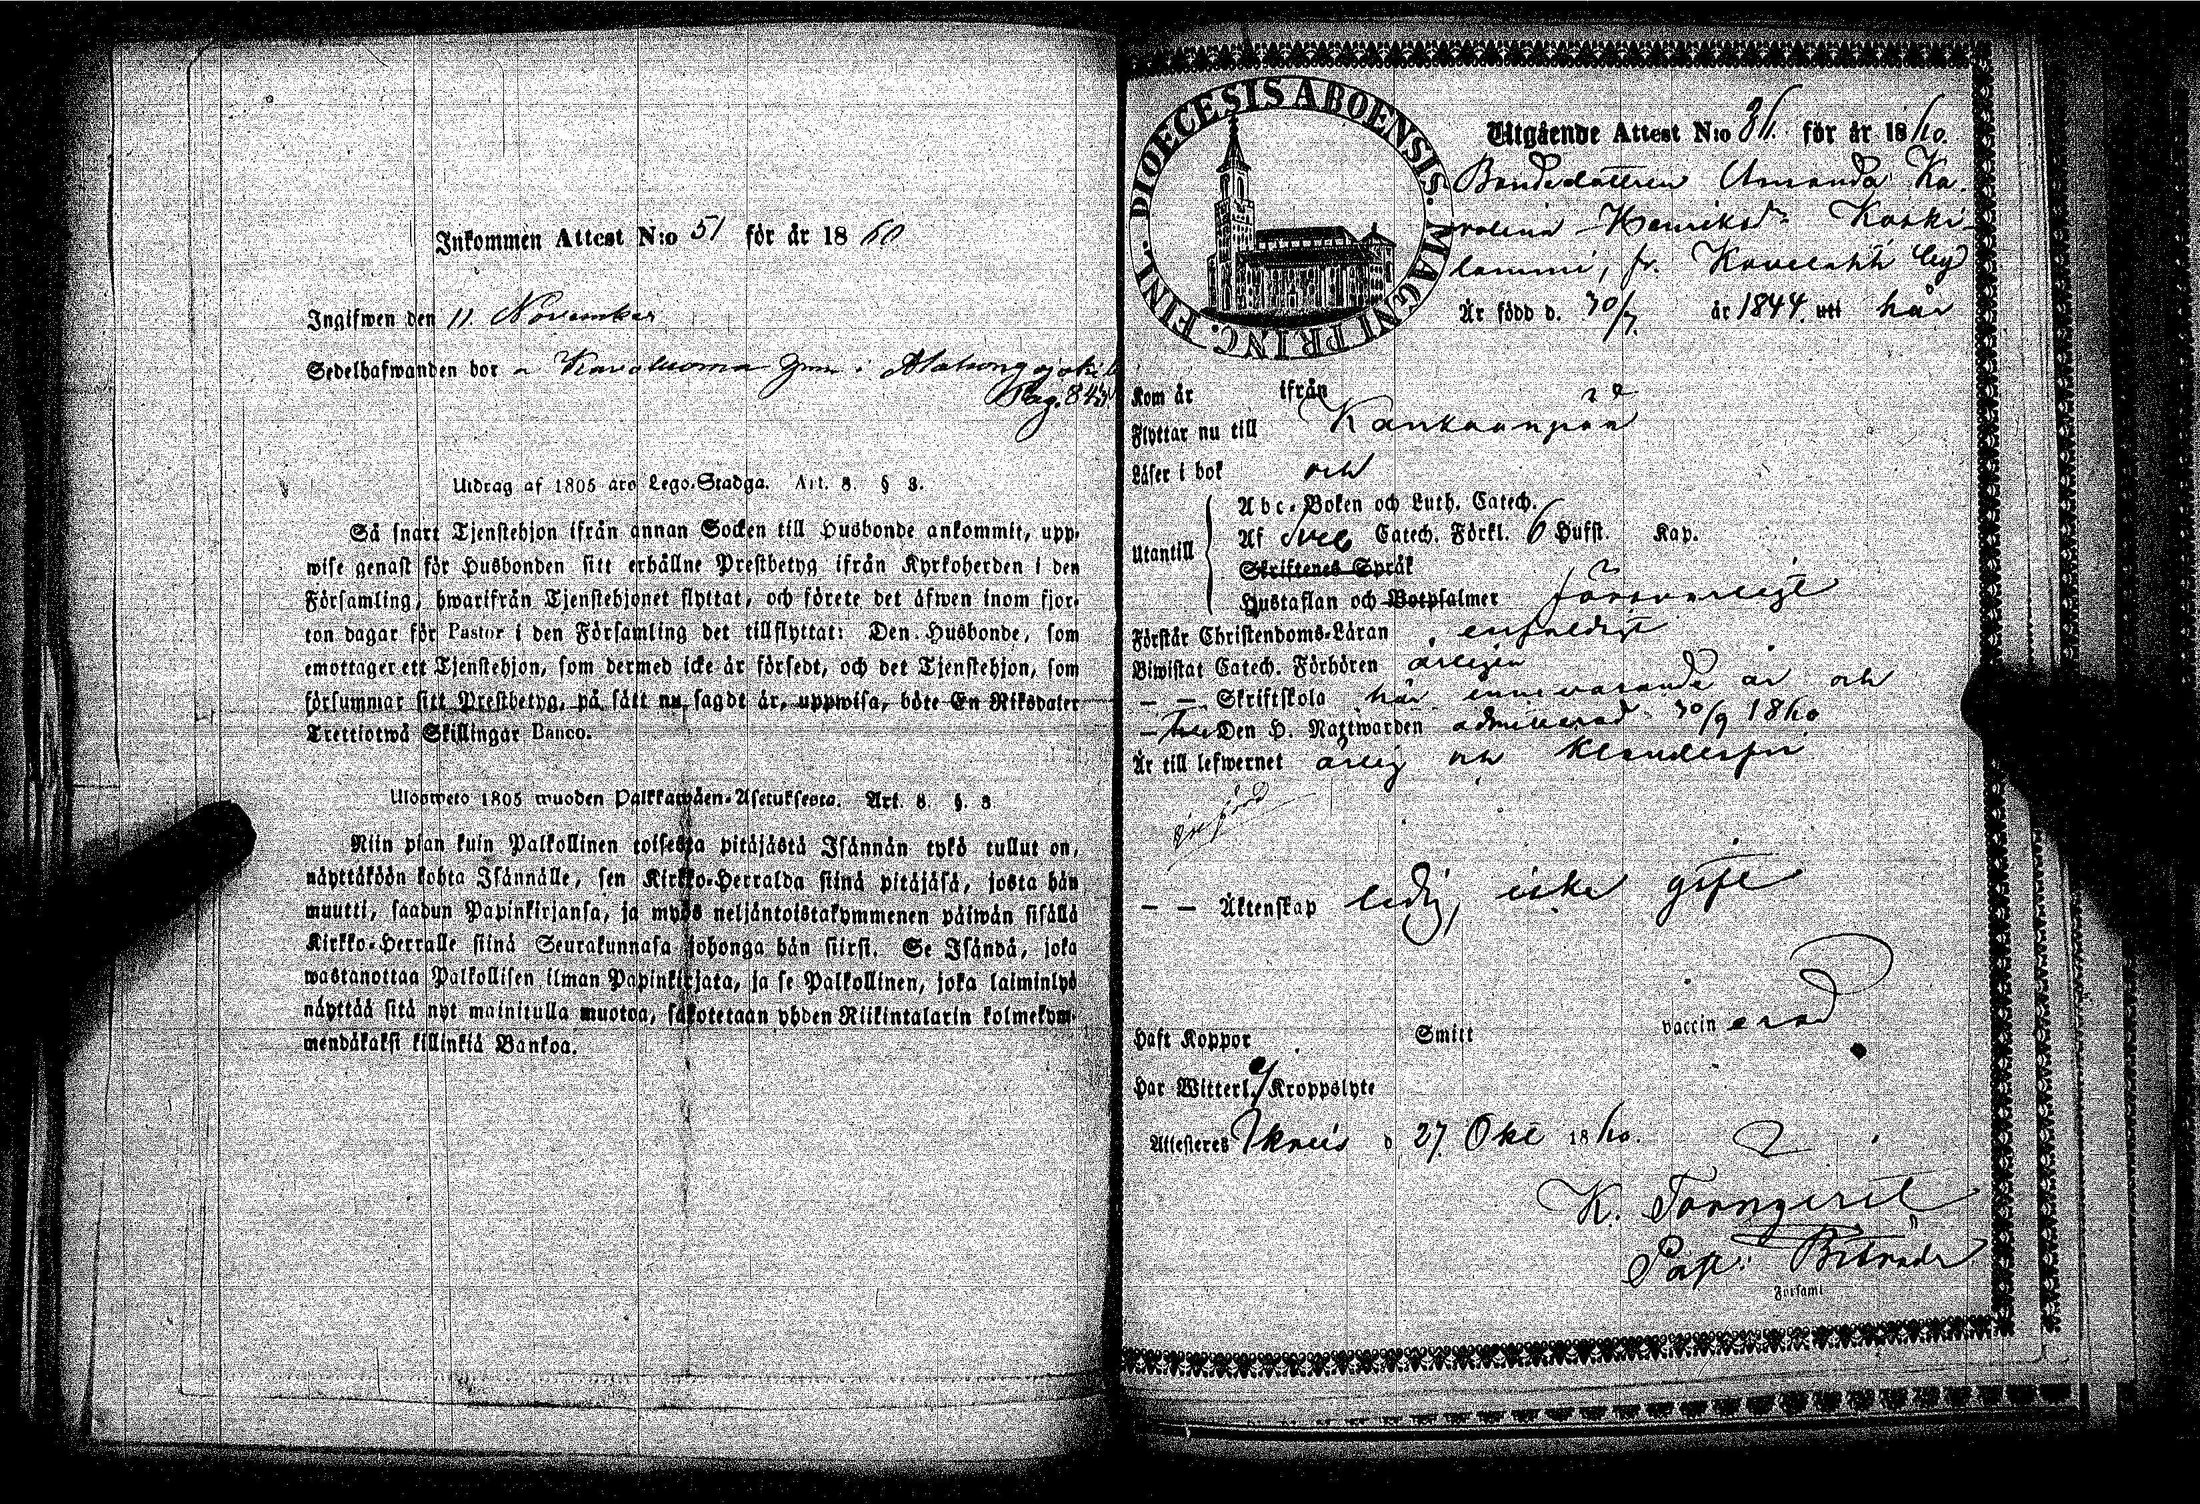 Inkommen Attest N:o 51 för år 1860
Ingifwen den 11. November
Sedelhafwanden bor
Pag. 843
Utdrag af 1805 års Lego-Stadga. Art. 8. § 3.
Så snart Tjenstehjon ifrån annan Socken till Husbonde ankommit, upp-
wise genast för Husbonden sitt erhållne Prestbetyg ifrån Kyrkoherden i den
Församling, hwarifrån Tjenstehjonet flyttat, och förete det äfwen inom fjor-
ton dagar för Pastor i den Församling det tillflyttat: Den Husbonde, som
emottager ett Tjenstehjon, som dermed icke är försedt, och det Tjenstehjon, som
försummar sitt Prestbetyg, på sätt nu sagdt är, uppwisa, böte En Riksdaler
Trettiotwå Skillingar Banco.
Ulosweto 1805 wuoden Palkkawäen-Asetuksesta. Art. 8. §. 3
Niin pian kuin Palkollinen toisesta pitäjästä Isännän tykö tullut on,
näyttäköön kohta Isännälle, sen Kirkko-Herralda siinä pitäjäsä, josta hän
muutti, saadun Papinkirjansa, ja myös neljäntoistakymmenen päiwän sisällä
Kirkko-Herralle siinä Seurakunnasa johonga hän siirsi. Se Isändä, joka
wastanottaa Palkollisen ilman Papinkirjata, ja se Palkollinen, joka laiminlyö
näyttää sitä nyt mainitulla muotoa, sakotetaan yhden Riikintalarin kolmekym-
mendäkaksi killinkiä Bankoa.
DIOECESIS ABOENSIS. MAGNI PRINC. FINL.
Utgående Attest N:o för år 1860.
Bondedottren Amanda Ka-
rolina Henriksdr Koski-
lammi, fr. by
Är född d. 30/7. år 1844. uti här
Kom år ifrån
Flyttar nu till Kankaanpää
Läser i bok och
Utantill
Abc-Boken och Luth. Catech.
Af Sveb Catech. Förkl. 6 Hufst. Kap.
Skriftenes Språk
Hustaflan och Botpsalmer försvarligt
Förstår Christendoms-Läran enfaldigt
Biwistat Catech. Förhören årligen
— — Skriftskola här innevarande år och
— till Den H. Nattwarden admitterad 30/9 1860
Är till lefwernet ärlig och klanderfri
— — Äktenskap ledig, icke gift
Haft Koppor Smitt vaccinerad
Har Witterl. Kroppslyte
Attesteras Ikalis d 27. Okt 1860.
K. Törnqvist
Past. Biträde
Församl